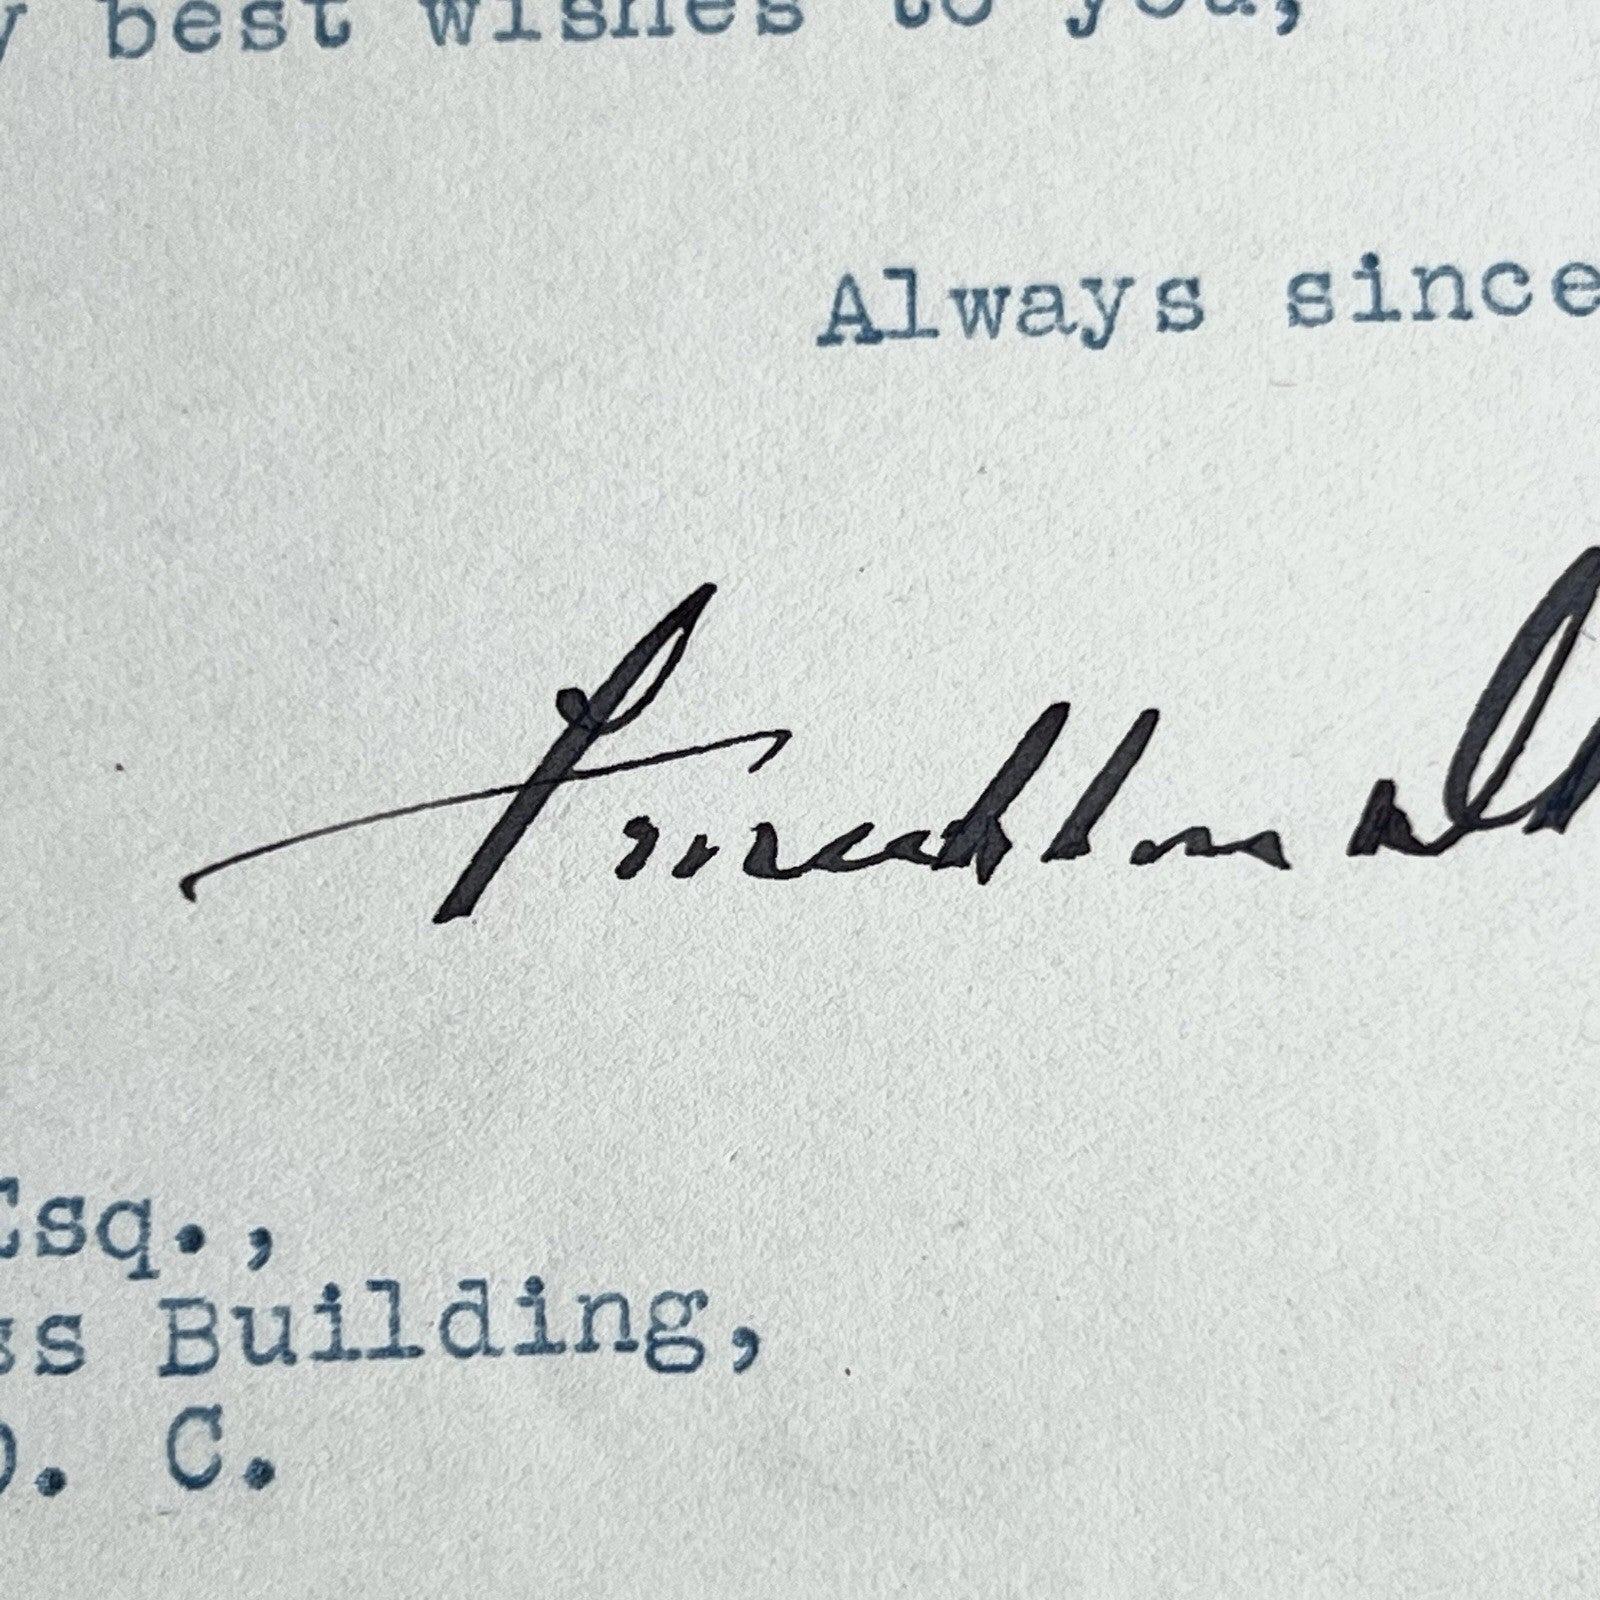 y best wishes to you,
Always since
Franklin D
Esq.,
ss Building,
D. C.